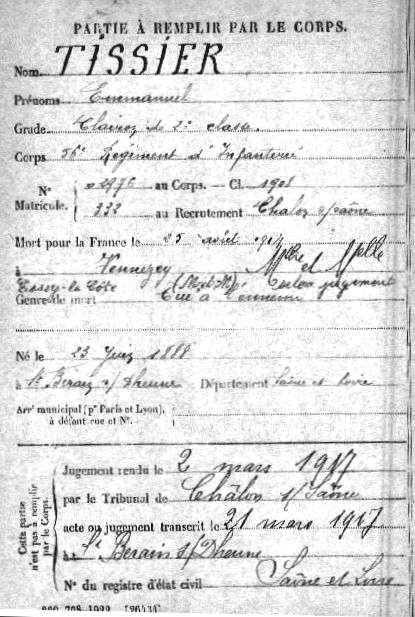 PARTIE À REMPLIR PAR LE CORPS.
Nom TISSIER
Prénoms Emmanuel
Grade de 2e classe
Corps 56e Régiment d'Infanterie
N° Matricule. 2976 au Corps. — Cl. 1908
332 au Recrutement Chalon s/Saône
Mort pour la France le 25 août 1914
à Vennezey M et M
Essey-la-Côte selon jugement
Genre de mort Tué à l'ennemi
Né le 23 Juin 1888
à St Bérain s/Dheune Département Saône et Loire
Arrt municipal (pr Paris et Lyon),
à défaut rue et N°.
Cette partie n'est pas à remplir par le Corps.
Jugement rendu le 2 mars 1917
par le Tribunal de Châlon s/Saône
acte ou jugement transcrit le 21 mars 1917
à St Berain s/Dheune
N° du registre d'état civil Saône et Loire